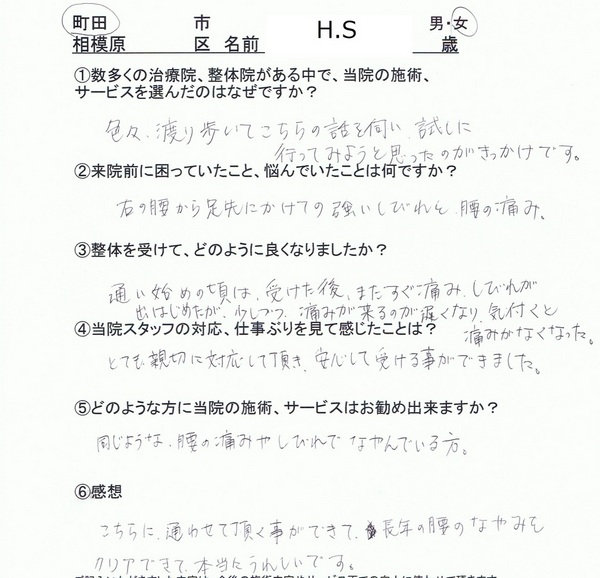 町田 市 H.S 男・女
相模原 区 名前 歳
①数多くの治療院、整体院がある中で、当院の施術、
サービスを選んだのはなぜですか？
色々、渡り歩いてこちらの話を伺い、試しに
行ってみようと思ったのがきっかけです。
②来院前に困っていたこと、悩んでいたことは何ですか？
右の腰から足先にかけての強いしびれと、腰の痛み、
③整体を受けて、どのように良くなりましたか？
通い始めの頃は、受けた後、またすぐ痛み、しびれが
出はじめたが、少しづつ、痛みが来るのが遅くなり、気付くと
痛みがなくなった。
④当院スタッフの対応、仕事ぶりを見て感じたことは？
とても親切に対応して頂き、安心して受ける事ができました。
⑤どのような方に当院の施術、サービスはお勧め出来ますか？
同じような、腰の痛みやしびれでなやんでいる方。
⑥感想
こちらに、通わせて頂く事ができて、長年の腰のなやみを
クリアできて、本当にうれしいです。